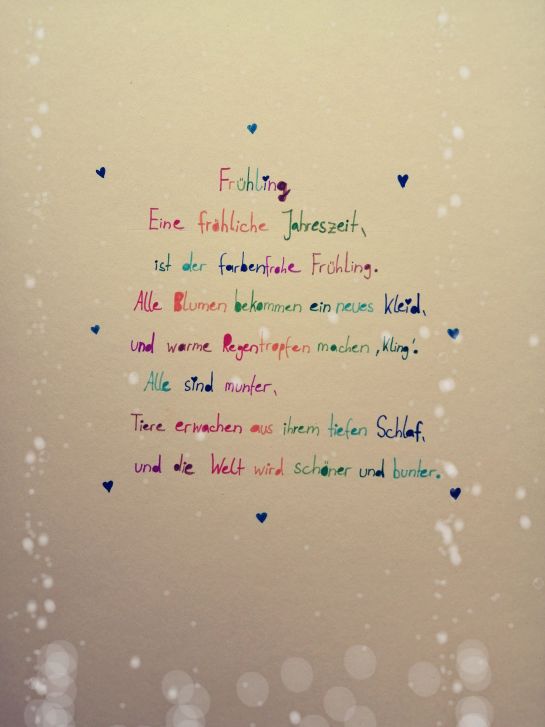 Frühling
Eine fröhliche Jahreszeit,
ist der farbenfrohe Frühling.
Alle Blumen bekommen ein neues Kleid,
und warme Regentropfen machen ‚Kling'.
Alle sind munter,
Tiere erwachen aus ihrem tiefen Schlaf,
und die Welt wird schöner und bunter.